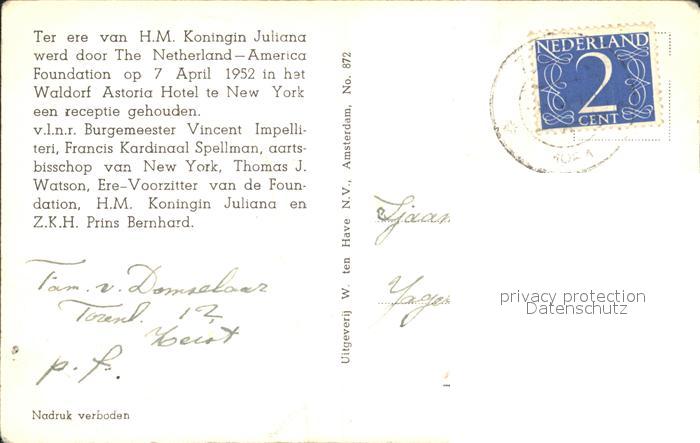 Ter ere van H.M. Koningin Juliana
werd door The Netherland—America
Foundation op 7 April 1952 in het
Waldorf Astoria Hotel te New York
een receptie gehouden.
v.l.n.r. Burgemeester Vincent Impelli-
teri, Francis Kardinaal Spellman, aarts-
bisschop van New York, Thomas J.
Watson, Ere-Voorzitter van de Foun-
dation, H.M. Koningin Juliana en
Z.K.H. Prins Bernhard.
Fam. v. Domselaar
Torenl. 12
p. f.
Nadruk verboden
Uitgeverij W. ten Have N.V., Amsterdam, No. 872
NEDERLAND
2
CENT
privacy protection
Datenschutz